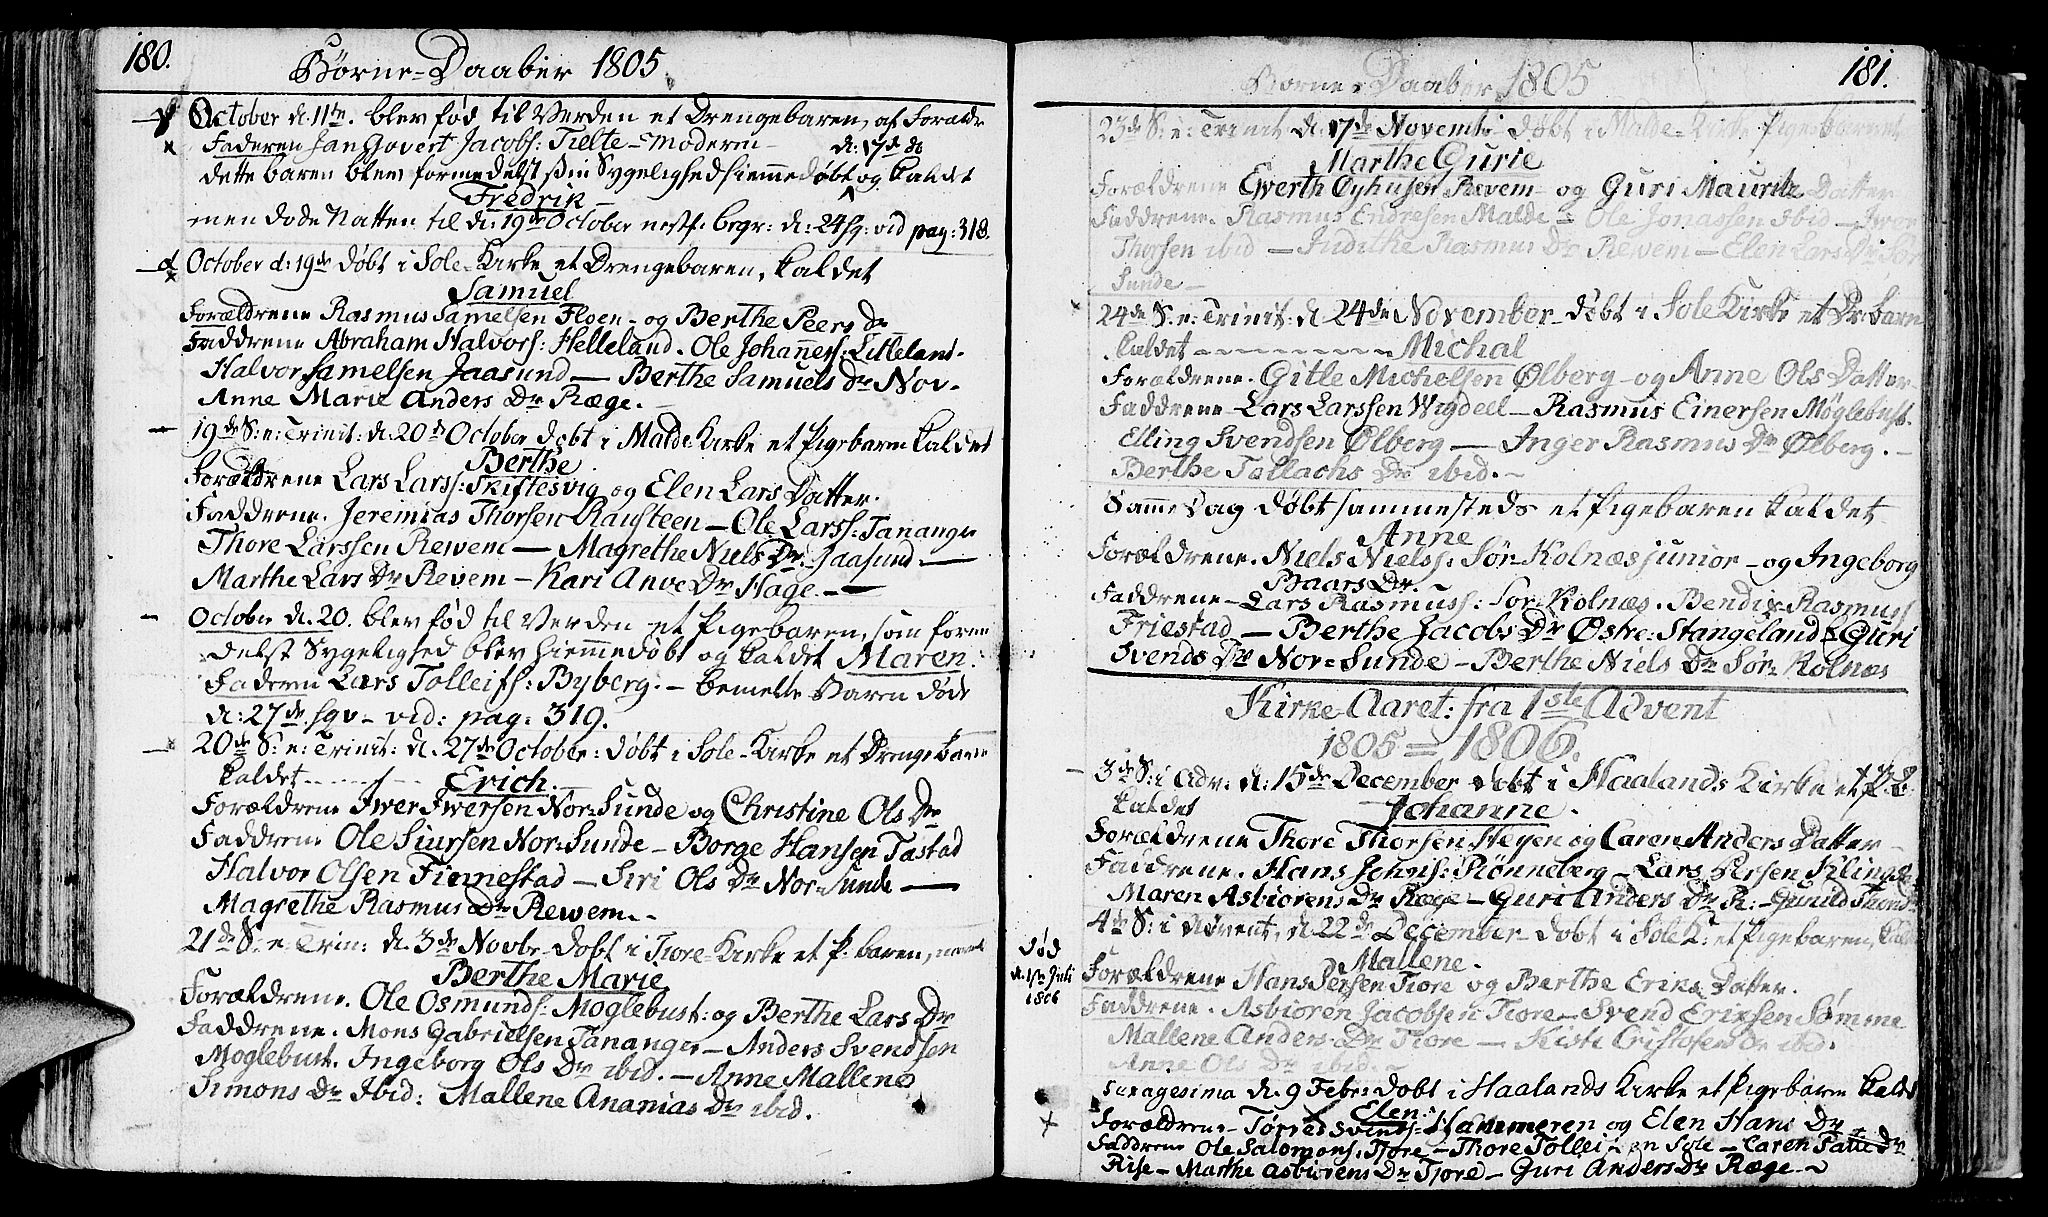 180.
Børne-Daaber 1805.
October d. 11te. blev fød til Verden et Drengebaren, af Forældr
Faderen Jan Govert Jacobs: Tielte - Moderen -
d: 17de do
dette baren blev formedelst sin Sygelighed hiemmedøbt og kaldet
Fredrik
men døde Natten til d: 19de October nestf. begr: d: 24 hj: vid pag: 318.
October d: 19de døbt i Sole-Kirke et Drengebaren, kaldet
Samuel
Forældrene Rasmus Samelsen Floen - og Berthe Peers Dr
Faddrene Abraham Halvors: Helleland. Ole Johannes: Litleland.
Halvor Samelsen Jaasund - Berthe Samuels Dr Nov.
Anne Marie Anders Dr Ræge. -
19de S: e: Trinit: d: 20de October døbt i Malde Kirke et Pigebaren kaldet
Berthe
Forældrene Lars Larss: Skiftesvig og Elen Lars Datter.
Faddrene. Jeremias Thorsen Rausteen - Ole Larss: Tananger
Thore Larssen Rewem - Magrethe Niels Dr: Jaasund -
Marthe Lars Dr Revem - Kari Anve Dr Hage. -
October d. 20. blev fød til Verden et Pigebaren, som forme
delst Sygelighed blev hiemmedøbt og kaldet Maren.
Faderen Lars Tolleifs: Byberg. - bemelte Baren døde
d: 27de hjv - vid: pag: 319.
20de S: e: Trinit: d. 27de October: døbt i Sole-Kirke et Drengebaren
kaldet - - - - - Erich.
Forældrene Iwer Iwersen Nor-Sunde og Christine Ols Dr
Faddrene Ole Siursen Nor-Sunde - Borge Hansen Tastad
Halvor Olsen Finnestad - Siri Ols Dr Nor-Sunde -
Magrethe Rasmus Dr Rewem. -
21de S: e: Trin: d. 3de Novbr - døbt i Tiore-Kirke et P: baren,
Berthe Marie
Forældrene. Ole Osmunds: Moglebust: og Berthe Lars Dr
Faddrene. Mons Gabrielsen Tananger - Anders Svendsen
Moglebust. Ingeborg Ols Dr ibid. - Anne Mallene
Simons Dr Ibid: Mallene Ananias Dr ibid.
181.
Børne-Daaber 1805
23de S: e: Trinit d. 17de Novemb: døbt i Malde-Kirke Pigebarnet
Marthe Gurie
Forældrene Ewerth Øyhusen Revem - og Guri Mauritz Datter
Faddrene. Rasmus Endresen Malde - Ole Jonassen ibid - Iver
Thorsen ibid - Judithe Rasmus Dr Rewem - Elen Lars Dr Sør
Sunde -
24de S: e: Trinit: d 24de November - døbt i Sole Kirke et Dr: barn
kaldet - - - - - - - - Michal
Forældrene. Gitle Michelsen Ølberg - og Anne Ols Datter
Faddrene - Lars Larssen Wigdeel - Rasmus Einersen Møglebust.
Elling Svendsen Ølberg - Inger Rasmus Dr Ølberg. -
Berthe Tollachs Dr ibid. -
Samme Dag døbt sammesteds et Pigebaren kaldet
Anne
Forældrene. Niels Nielss: Sør-Kolnæs junior - og Ingeborg
Baars Dr. -
Faddrene - Lars Rasmuss: Sør-Kolnæs. Bendix Rasmuss
Friestad - Berthe Jacobs Dr Østre: Stangeland - Guri
Svends Dr Nor-Sunde - Berthe Niels Dr Sør-Kolnæs
Kirke-Aaret: fra 1ste Advent
1805 = 1806.
3de S: i Adv: d: 15de December døbt i Haalands Kirke et P. B.
kaldet
Johanne.
Forældrene Thore Thorsen Stegen og Caren Anders Datter -
Faddrene. Hans Johns: Rønneberg - Lars Persen Kling
Maren Asbiorens Dr Ræge - Guri Anders Dr R: - Gunild
4de S: i Advent, d 22de December - døbt i Sole K: et Pigebaren,
Mallene.
Død
d. 1te Juli
1806
Forældrene Hans Persen Tiore og Berthe Eriks Datter.
Faddrene. Asbioren Jacobsen Tiore - Svend Eriksen Sømme
Mallene Anders Dr Tiore - Kisti Cristofers Dr ibid.
Anne Ols Dr ibid. -
Sexagesima d. 9 Febr: døbt i Haalands Kirke et Pigebaren kaldt
Elen:
Forældrene - Tørres Svends: Hammeren og Elen Hans Dr
Faddrene Ole Salomons: Tjore - Thore Tolleifsen Sole - Caren Dr
Rise - Marthe Asbiorens Dr Tjore - Guri Anders Dr Ræge -